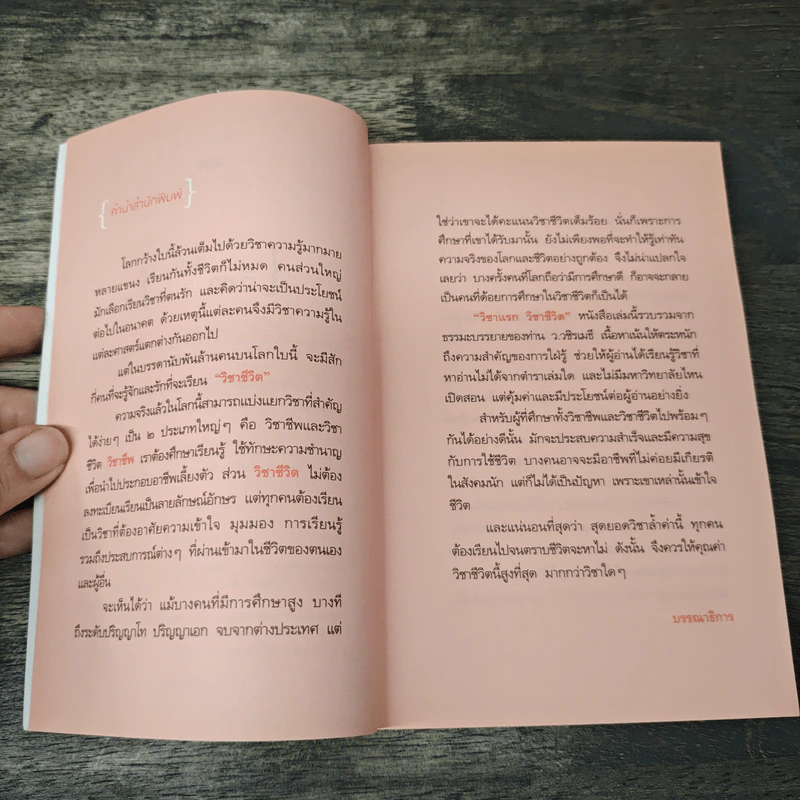 {คำนำสำนักพิมพ์}
โลกกว้างใบนี้ล้วนเต็มไปด้วยวิชาความรู้มากมาย
หลายแขนง เรียนกันทั้งชีวิตก็ไม่หมด คนส่วนใหญ่
มักเลือกเรียนวิชาที่ตนรัก และคิดว่าน่าจะเป็นประโยชน์
ต่อไปในอนาคต ด้วยเหตุนี้แต่ละคนจึงมีวิชาความรู้ใน
แต่ละศาสตร์แตกต่างกันออกไป
แต่ในบรรดานับพันล้านคนบนโลกใบนี้ จะมีสัก
กี่คนที่จะรู้จักและรักที่จะเรียน “วิชาชีวิต”
ความจริงแล้วในโลกนี้สามารถแบ่งแยกวิชาที่สำคัญ
ได้ง่ายๆ เป็น ๒ ประเภทใหญ่ๆ คือ วิชาชีพและวิชา
ชีวิต วิชาชีพ เราต้องศึกษาเรียนรู้ ใช้ทักษะความชำนาญ
เพื่อนำไปประกอบอาชีพเลี้ยงตัว ส่วน วิชาชีวิต ไม่ต้อง
ลงทะเบียนเรียนเป็นลายลักษณ์อักษร แต่ทุกคนต้องเรียน
เป็นวิชาที่ต้องอาศัยความเข้าใจ มุมมอง การเรียนรู้
รวมถึงประสบการณ์ต่างๆ ที่ผ่านเข้ามาในชีวิตของตนเอง
และผู้อื่น
จะเห็นได้ว่า แม้บางคนที่มีการศึกษาสูง บางที
ถึงระดับปริญญาโท ปริญญาเอก จบจากต่างประเทศ แต่
ใช่ว่าเขาจะได้คะแนนวิชาชีวิตเต็มร้อย นั่นก็เพราะการ
ศึกษาที่เขาได้รับมานั้น ยังไม่เพียงพอที่จะทำให้รู้เท่าทัน
ความจริงของโลกและชีวิตอย่างถูกต้อง จึงไม่น่าแปลกใจ
เลยว่า บางครั้งคนที่โลกถือว่ามีการศึกษาดี ก็อาจจะกลาย
เป็นคนที่ด้อยการศึกษาในวิชาชีวิตก็เป็นได้
“วิชาแรก วิชาชีวิต” หนังสือเล่มนี้รวบรวมจาก
ธรรมะบรรยายของท่าน ว.วชิรเมธี เนื้อหาเน้นให้ตระหนัก
ถึงความสำคัญของการใฝ่รู้ ช่วยให้ผู้อ่านได้เรียนรู้วิชาที่
หาอ่านไม่ได้จากตำราเล่มใด และไม่มีมหาวิทยาลัยไหน
เปิดสอน แต่คุ้มค่าและมีประโยชน์ต่อผู้อ่านอย่างยิ่ง
สำหรับผู้ที่ศึกษาทั้งวิชาชีพและวิชาชีวิตไปพร้อมๆ
กันได้อย่างดีนั้น มักจะประสบความสำเร็จและมีความสุข
กับการใช้ชีวิต บางคนอาจจะมีอาชีพที่ไม่ค่อยมีเกียรติ
ในสังคมนัก แต่ก็ไม่ได้เป็นปัญหา เพราะเขาเหล่านั้นเข้าใจ
ชีวิต
และแน่นอนที่สุดว่า สุดยอดวิชาล้ำค่านี้ ทุกคน
ต้องเรียนไปจนตราบชีวิตจะหาไม่ ดังนั้น จึงควรให้คุณค่า
วิชาชีวิตนี้สูงที่สุด มากกว่าวิชาใดๆ
บรรณาธิการ